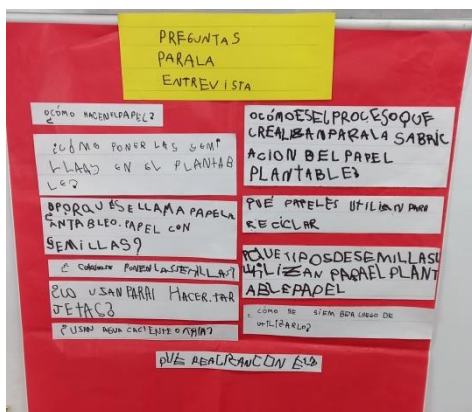 PREGUNTAS
PARALA
ENTREVISTA
¿CÓMO HACENELPAPEL?
¿CÓMO PONER LAS SEMI
LLAAS EN EL PLANTAB
LE?
¿PORQUÉ SE LLAMA PAPELA
ANTABLEO.PAPEL CON
SEMILLAS?
¿ PONEN LASSEMILLAS?
¿LO USAN PARA HACER.TAR
JETAS?
¿USAN AGUA CALIENTE O
¿CÓMOESELPROCESOQUE
CREALIBANPARALA SABRIC
ACION DEL PAPEL
PLANTABLE?
QUÉ PAPELES UTILISAN PARA
RECICLAR
¿QUE TIPOSDESEMILLASU
TILIZAN PARAELPLANT
ABLEPAPEL
¿ CÓMO SE SIEMBRA LUEGO DE
UTILIZARLO?
QUÉ REALIZANCON